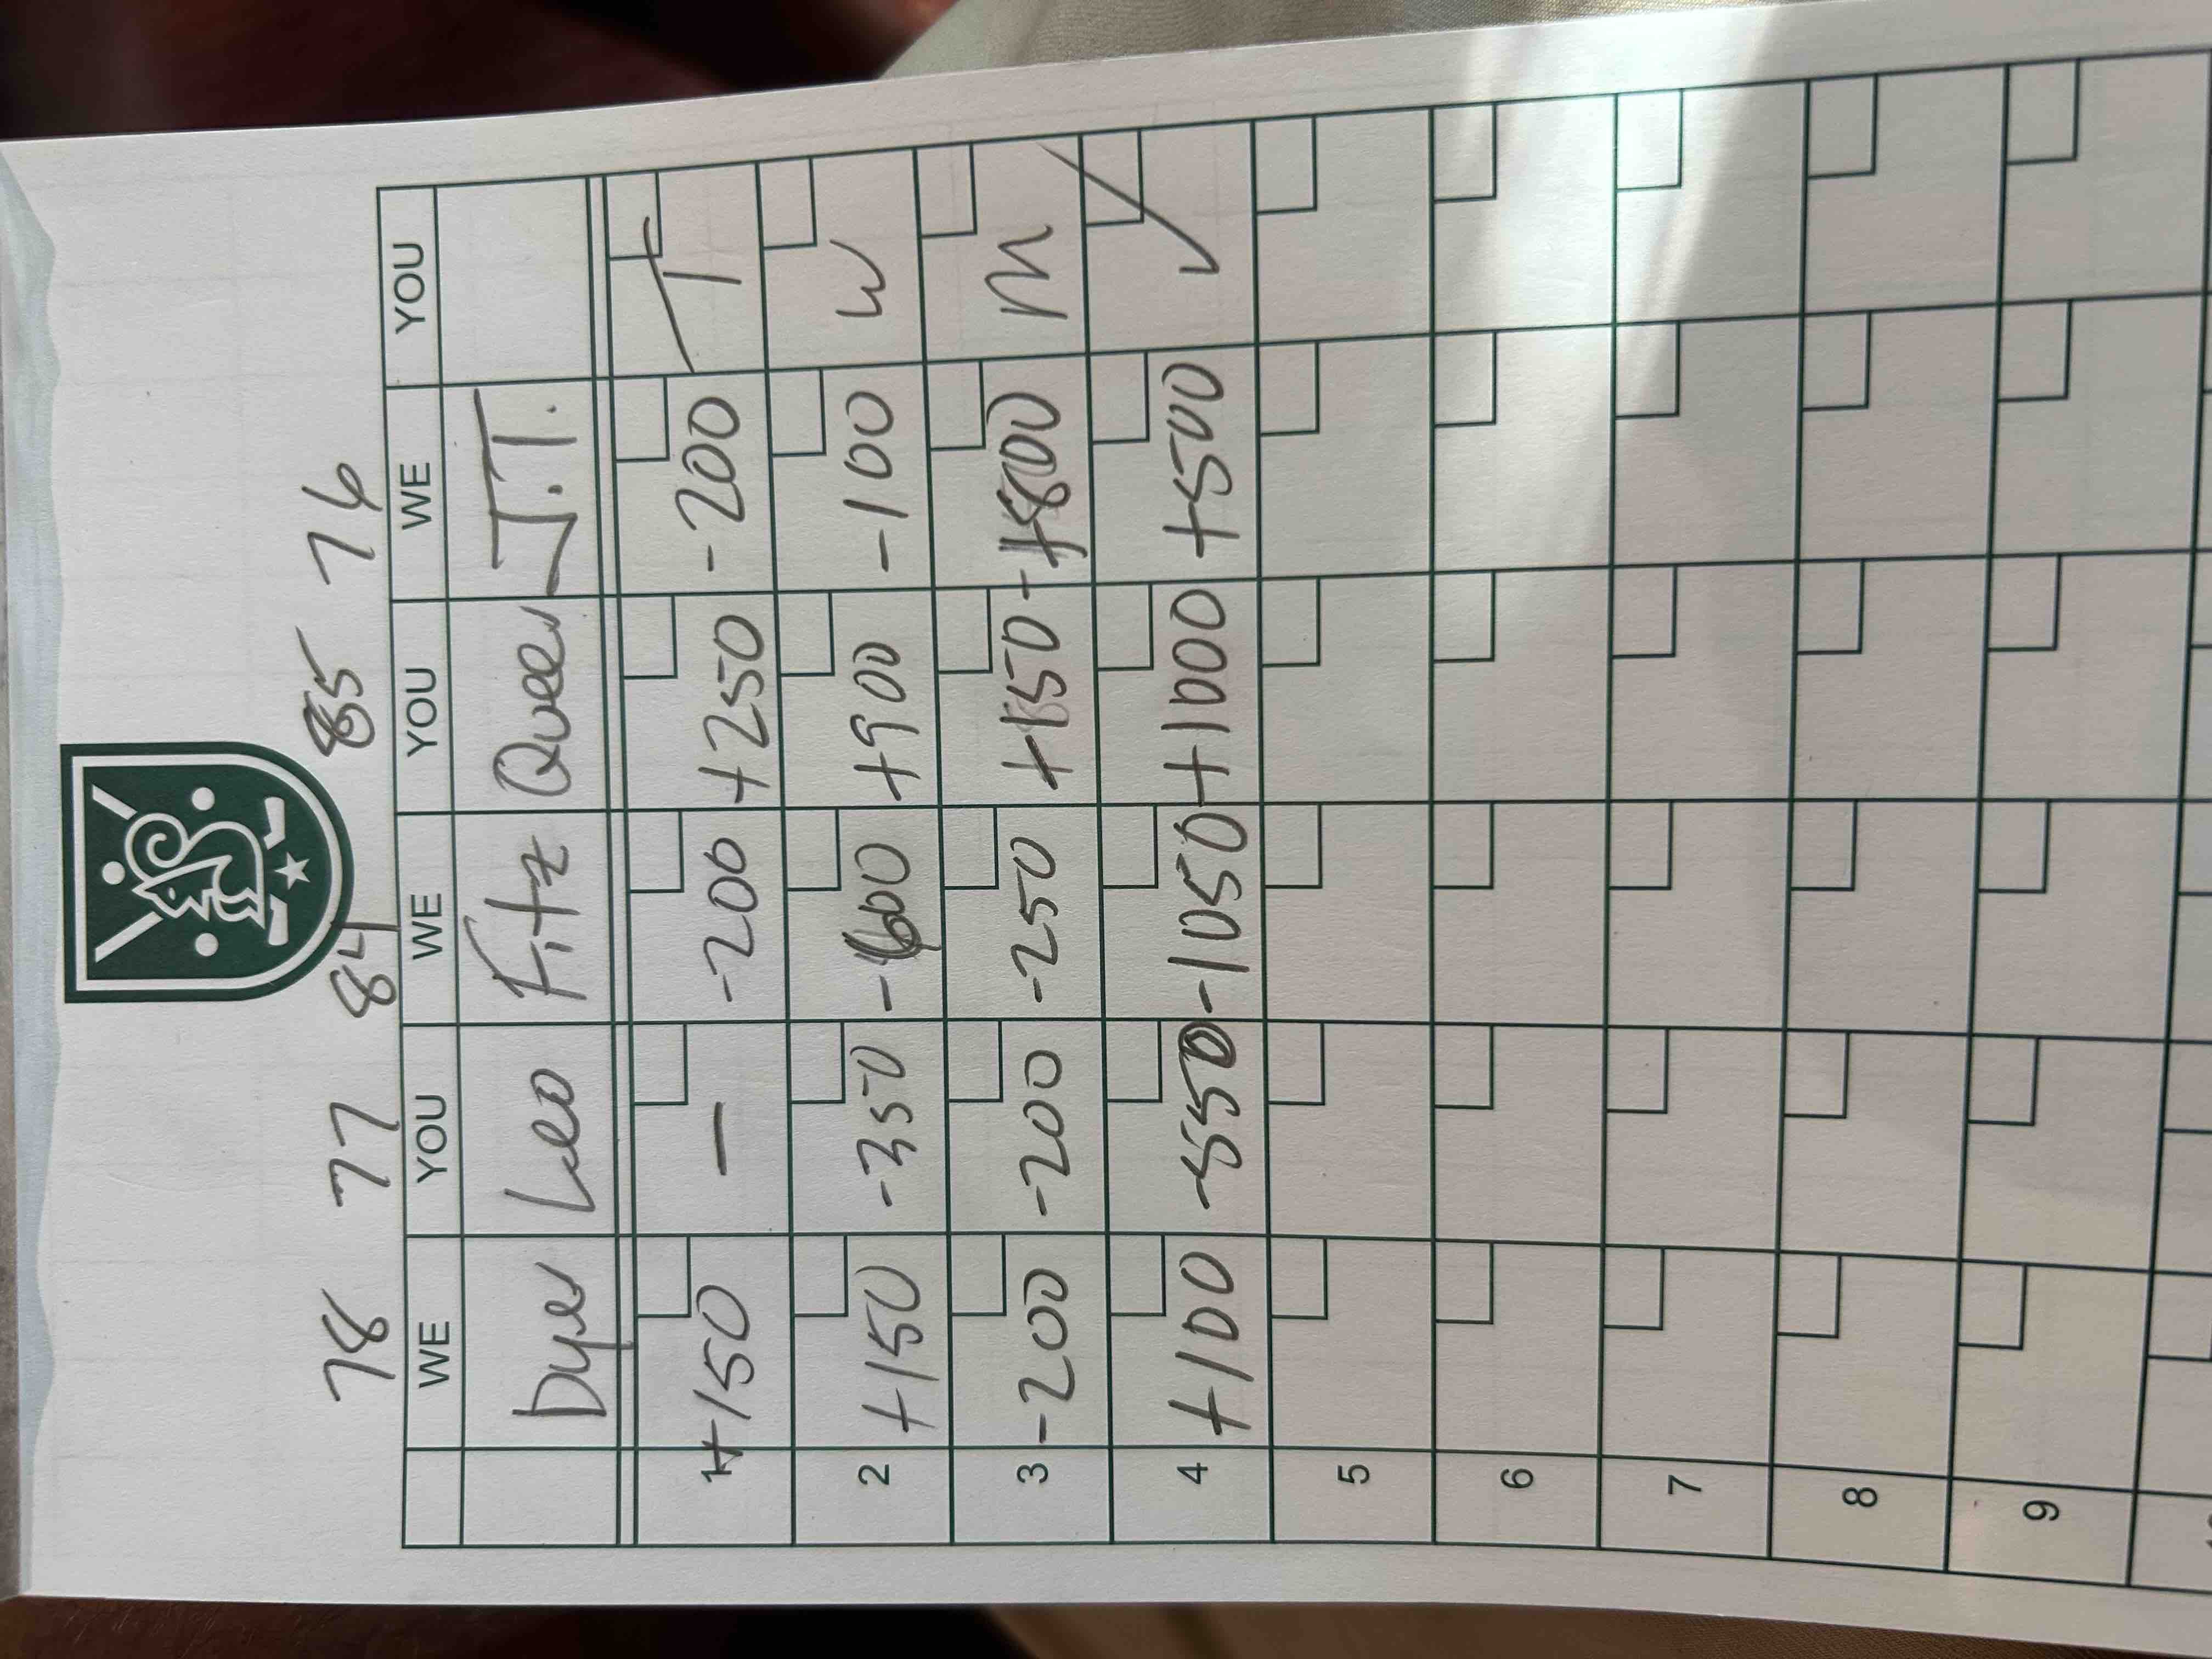 78 77 84 85 76
WE YOU WE YOU WE YOU
Dyer Leo Fitz Queen J.T.
1 +150 — -200 +250 -200 T
2 +150 -350 -600 +900 -100 W
3 -200 -200 -250 +800 M
4 +100 -550 -1050 +1000 +500 ✓
5
6
7
8
9